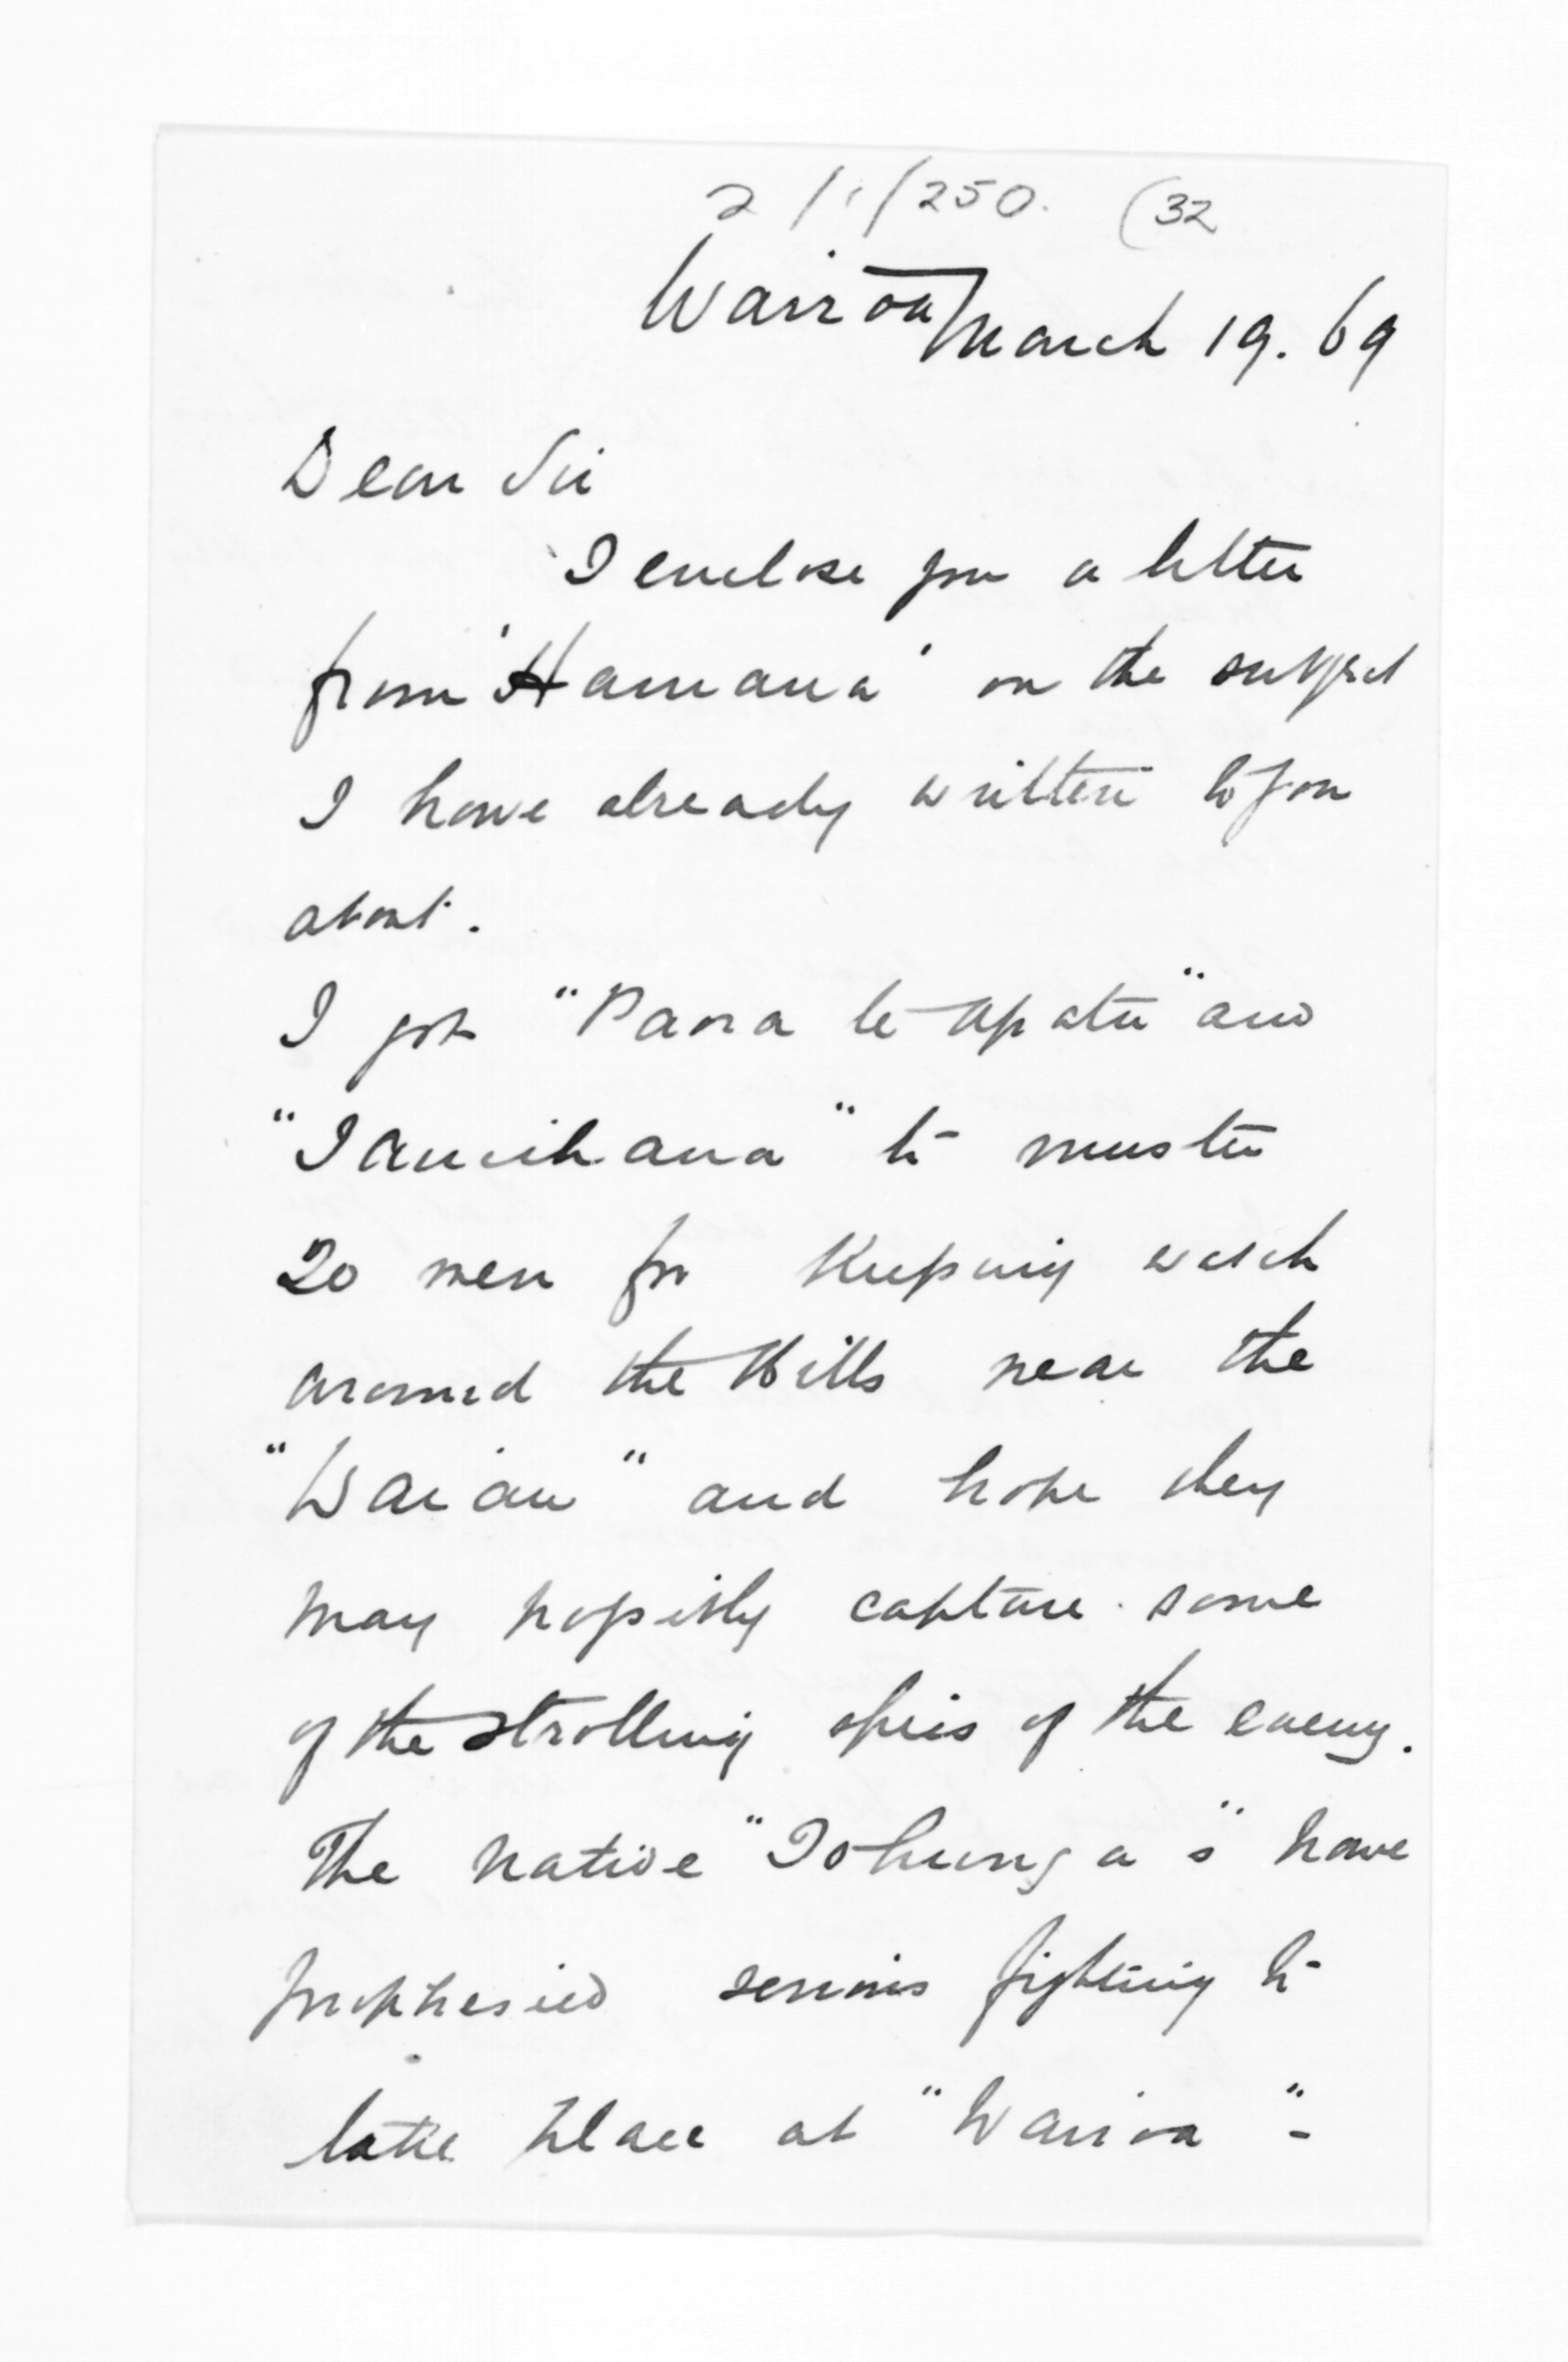 2/1/250. (32
Wairoa March 19. 69
Dear Sir
I enclose you a letter
from "Hamana" on the subject
I have already written to you
about.
I got "Paora te Apatu" and
"Tamihana" to muster
20 men for Keeping watch
around the Hills near the
"Waiau" and hope they
may possibly capture some
of the strolling spies of the enemy.
The native "Tohunga's" have
prophesied serious fighting to
take place at "Wairoa" -